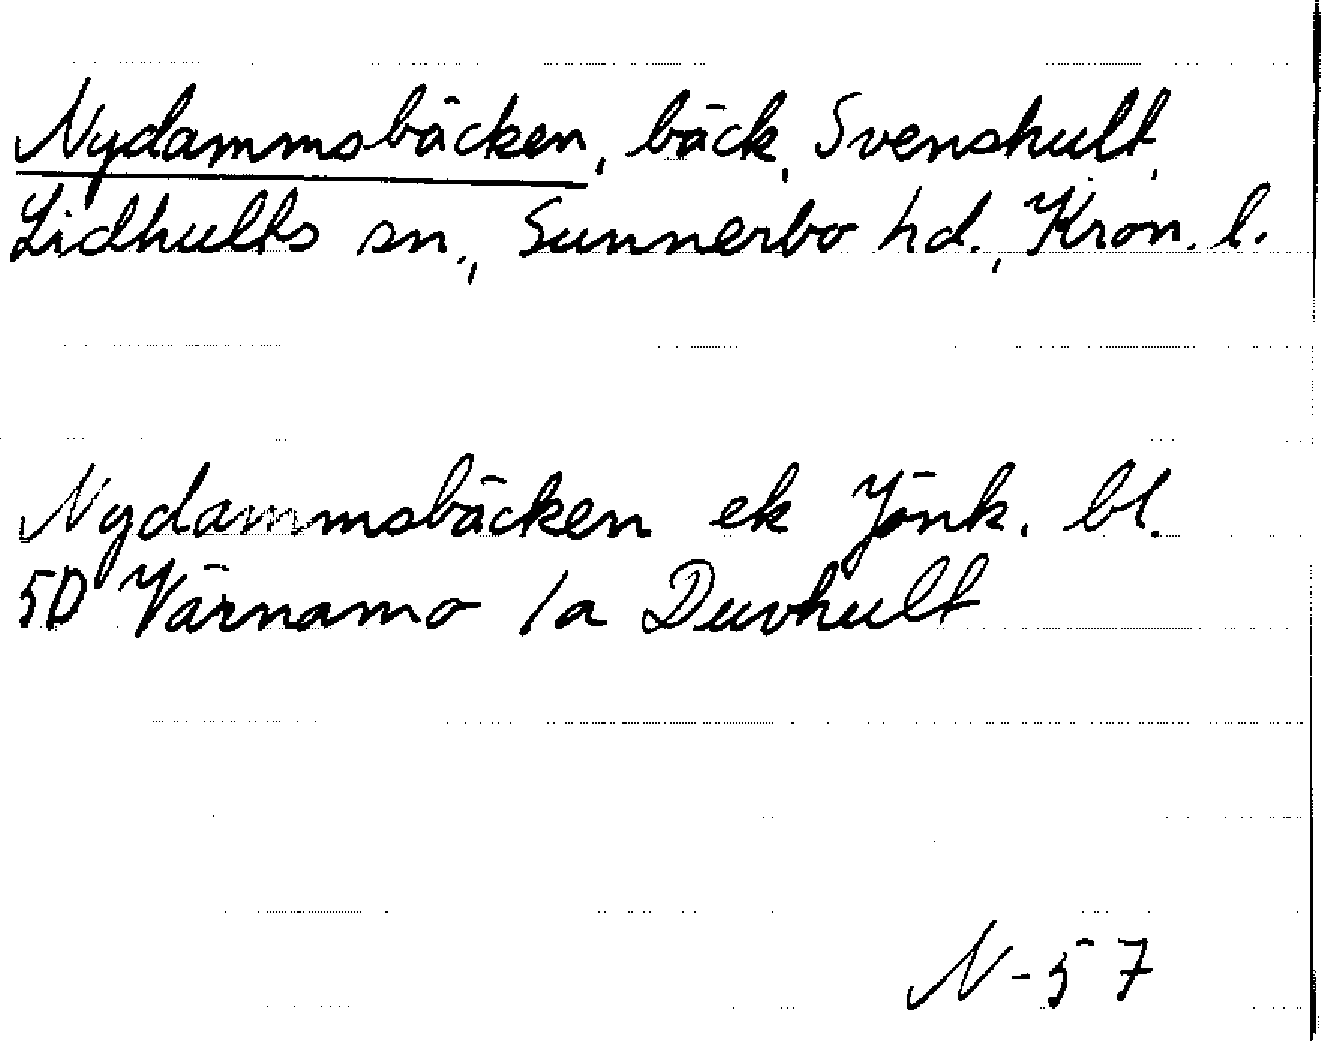 Nydammsbäcken, bäck, Svenshult,
Lidhults sn., Sunnerbo hd., Kron. l.
Nydammsbäcken ek Jönk. bl.
5D Värnamo 1a Duvhult
N-57